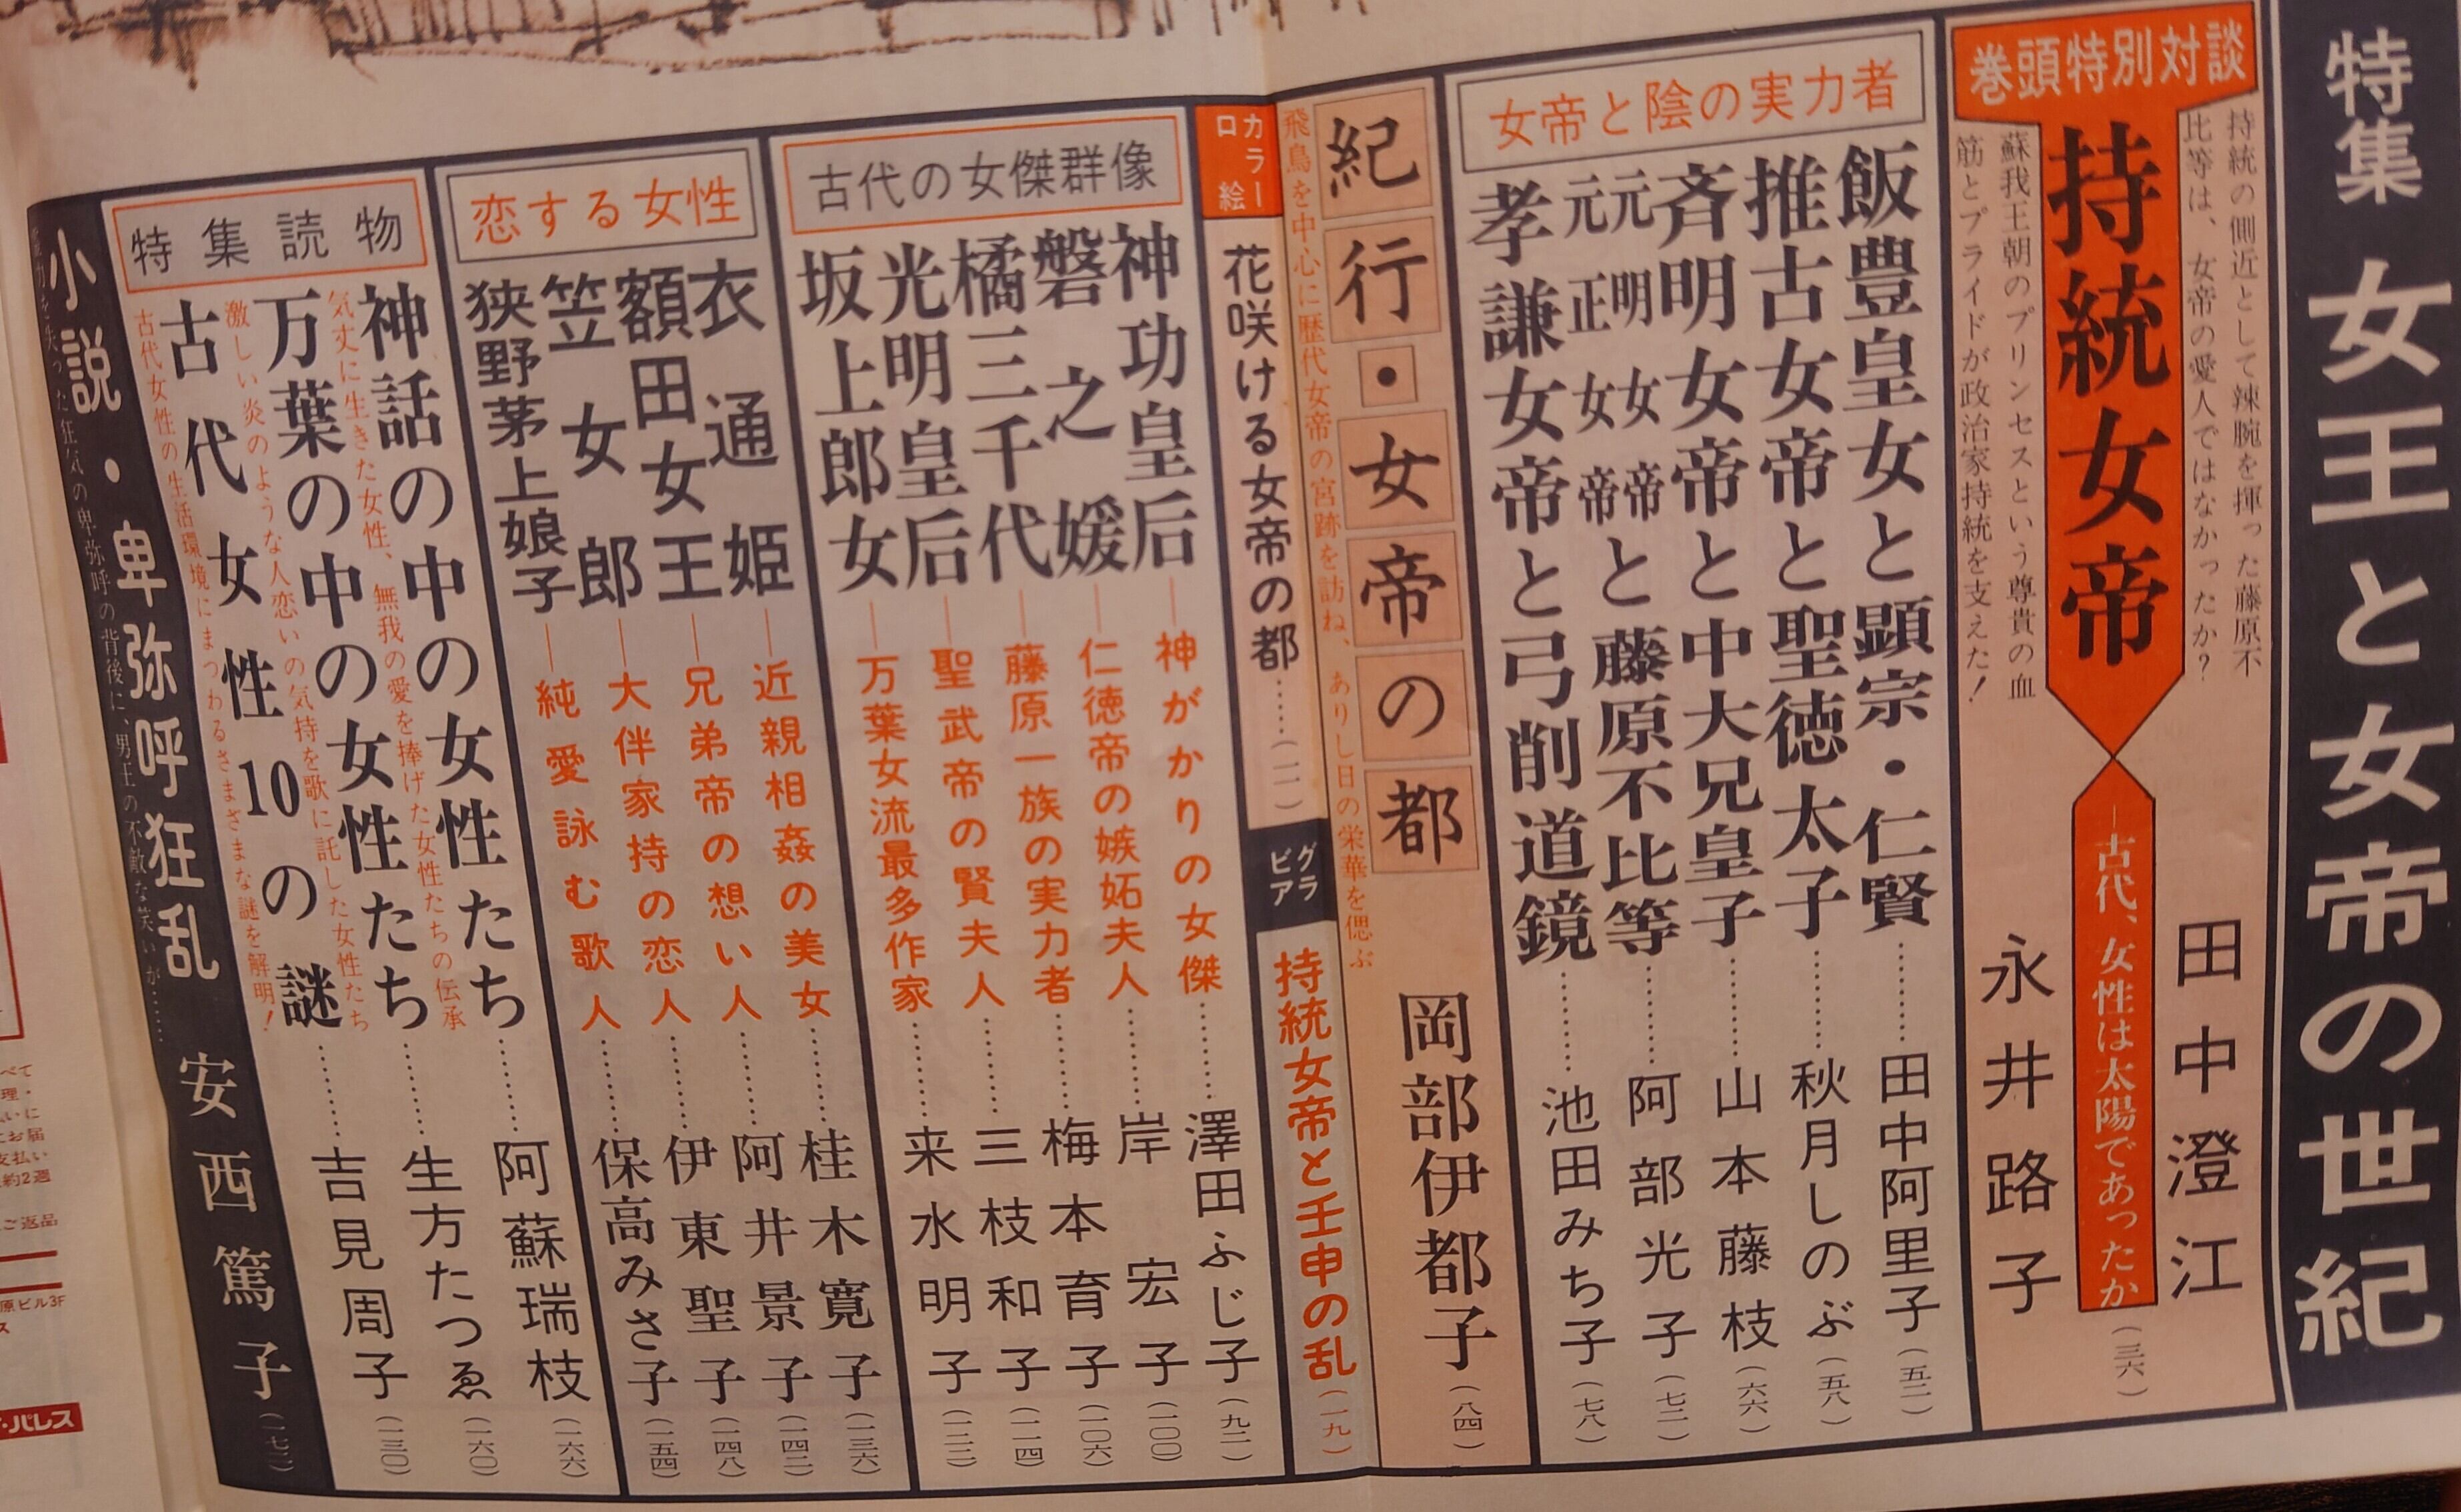 特集 女王と女帝の世紀
巻頭特別対談
持統の側近として辣腕を揮った藤原不
比等は、女帝の愛人ではなかったか?
持統女帝
蘇我王朝のプリンセスという尊貴の血
筋とプライドが政治家持統を支えた!
―古代、女性は太陽であったか
田中澄江
永井路子
(三六)
女帝と陰の実力者
飯豊皇女と顕宗・仁賢……田中阿里子(五二)
推古女帝と聖徳太子……秋月しのぶ(五八)
斉明女帝と中大兄皇子……山本藤枝(六六)
元明女帝
元正女帝
と藤原不比等……阿部光子(七二)
孝謙女帝と弓削道鏡……池田みち子(七八)
紀行・女帝の都
岡部伊都子(八四)
飛鳥を中心に歴代女帝の宮跡を訪ね、ありし日の栄華を偲ぶ
カラー
口絵
花咲ける女帝の都……(一一)
グラ
ビア
持統女帝と壬申の乱(一九)
古代の女傑群像
神功皇后―神がかりの女傑……澤田ふじ子(九二)
磐之媛―仁徳帝の嫉妬夫人……岸宏子(一〇〇)
橘三千代―藤原一族の実力者……梅本育子(一〇六)
光明皇后―聖武帝の賢夫人……三枝和子(一一四)
坂上郎女―万葉女流最多作家……来水明子(一二二)
恋する女性
衣通姫―近親相姦の美女……桂木寛子(一三六)
額田女王―兄弟帝の想い人……阿井景子(一四二)
笠女郎―大伴家持の恋人……伊東聖子(一四八)
狭野茅上娘子―純愛詠む歌人……保高みさ子(一五四)
特集読物
神話の中の女性たち……阿蘇瑞枝(一六六)
気丈に生きた女性、無我の愛を捧げた女性たちの伝承
万葉の中の女性たち……生方たつゑ(一六〇)
激しい炎のような人恋いの気持を歌に託した女性たち
古代女性10の謎……吉見周子(一三〇)
古代女性の生活環境にまつわるさまざまな謎を解明!
小説・卑弥呼狂乱
安西篤子(一七二)
を失った狂気の卑弥呼の背後に、男王の不敵な笑いが……
べて
理・
いに
お届
支払い
約2週
ご返品
原ビル3F
ス
・パレス